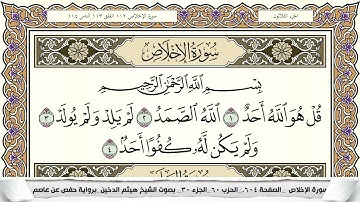 الجزء الثلاثون
سورة الإخلاص ١١٢ الفلق ١١٣ الناس ١١٤
سُورَةُ الإِخْلَاصِ
بِسْمِ ٱللَّهِ ٱلرَّحْمَٰنِ ٱلرَّحِيمِ
قُلْ هُوَ ٱللَّهُ أَحَدٌ ١ ٱللَّهُ ٱلصَّمَدُ ٢ لَمْ يَلِدْ وَلَمْ يُولَدْ ٣
وَلَمْ يَكُن لَّهُۥ كُفُوًا أَحَدٌۢ ٤
سورة الإخلاص _ الصفحة ٦٠٤ _ الحزب ٦٠ _ الجزء ٣٠ _ بصوت الشيخ هيثم الدخين _ برواية حفص عن عاصم